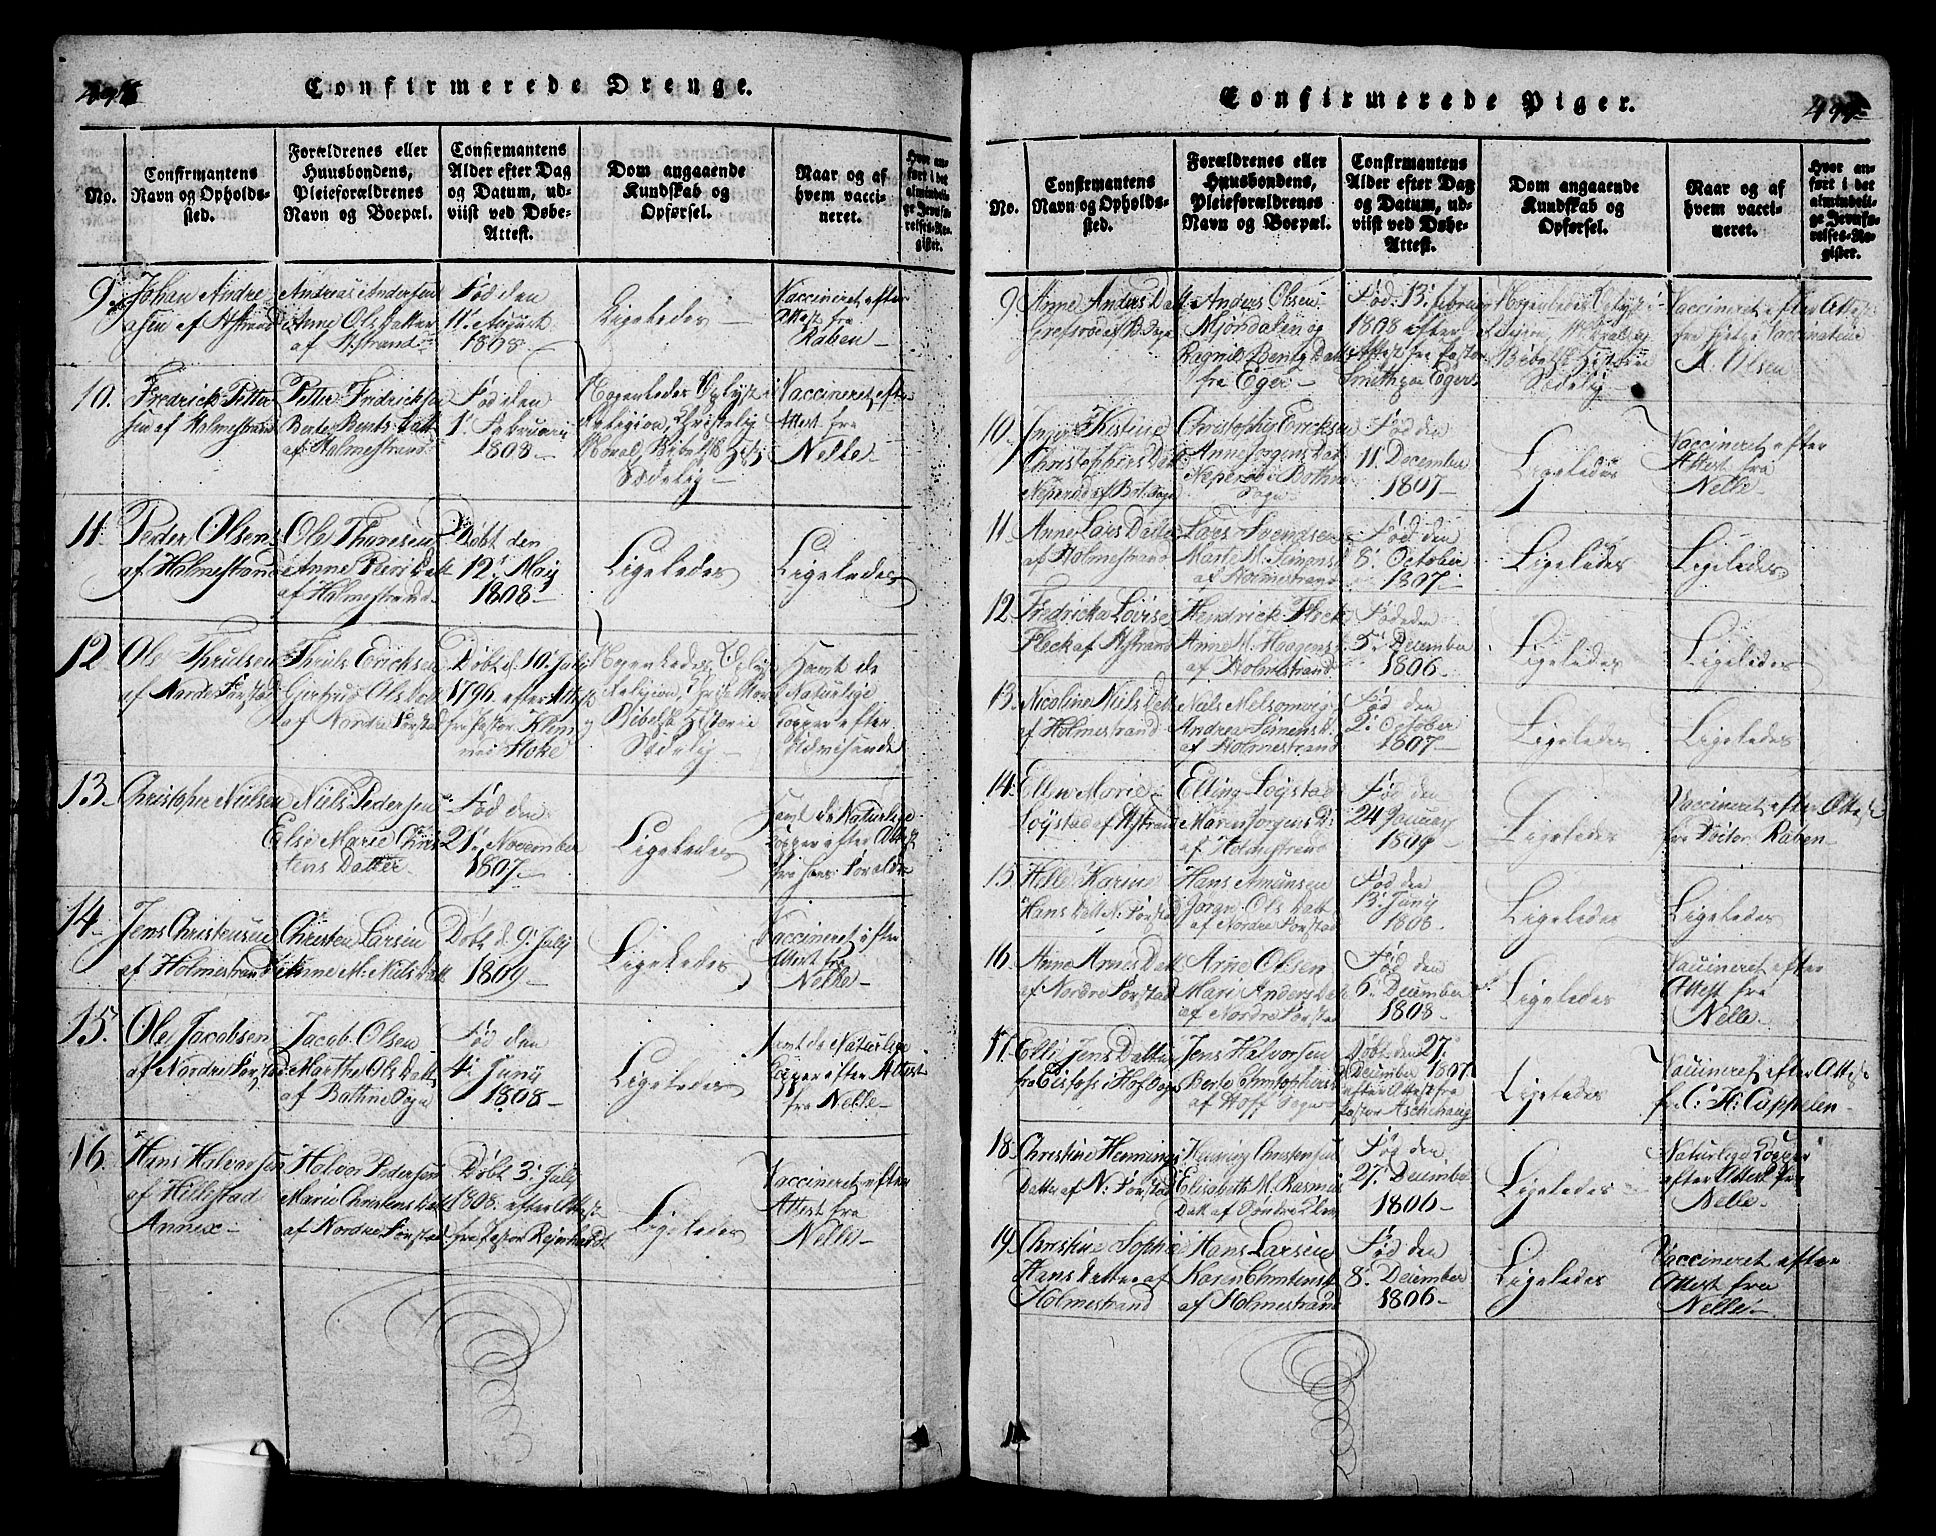 Confirmerede Drenge.
No.
Confirmantens
Navn og Opholds-
sted.
Forældrenes eller
Huusbondens,
Pleieforældrenes
Navn og Boepæl.
Confirmantens
Alder efter Dag
og Datum, ud-
viist ved Døbe-
Attest.
Dom angaaende
Kundskab og
Opførsel.
Naar og af
hvem vacci-
neret.
Hvor an-
ført i det
almindeli-
ge Jevnfø-
relses-Re-
gister.
9.
Johan Andre
asen af Astrand
Andreas Andersen
Anne Ols Datter
af Astrand
Fød den
11' August
1808
Ligeledes
Vaccineret efter
Attest fra
Raben
10.
Fredrick Petter
sen af Holmestrand
Petter Fredricksen
Berte Bents Datt
af Holmestrand
Fød den
1' Februarii
1808
Nogenledes Oplyst i
Religion, Christelig
Moral, Bibelsk Hist
Sædelig
Vaccineret efter
Attest fra
Nelle
11.
Peder Olsen
af Holmestrand
Ole Thoresen
Anne Peers Datt
af Holmestrand
Døbt den
12' Maij
1808
Ligeledes
Ligeledes
12
Ole Thrulsen
af Nordre Førstad
Thruls Ericksen
Giertrud Ols Datt
af Nordre Førstad
Døbt d. 10' Julij
1796 efter Attest
fra Pastor Klem
Nogenledes Oplyst
Religion,
Bibelsk Historie
Sædelig
Havt de
Naturlige
Kopper efter
Udvisende
13.
Christopher Nielsen
Niels Pedersen
Else Marie Chris
tens Datter
Fød den
21' November
1807
Ligeledes
Havt de Naturlige
Kopper efter Attest
fra hans Foraldre
14.
Jens Christensen
af Holmestrand
Christen Larsen
Anne M. Niels Datt
Døbt d. 9' Julij
1809
Ligeledes
Vaccineret efter
Attest fra
Nelle
15.
Ole Jacobsen
af Nordre Førstad
Jacob Olsen
Marthe Ols Datt
af Bothne Sogn
Fød den
4' Junij
1808
Ligeledes
Havt de Naturlige
Kopper efter Attest
fra Nelle
16.
Hans Halvorsen
af Hillestad
Annex
Halvor Pedersen
Marie Christens Datt
af Nordre Førstad
Døbt 3' Julij
1808 efter Attest
fra Pastor Reinhardt
Ligeledes
Vaccineret efter
Attest fra
Nelle
Confirmerede Piger.
No.
Confirmantens
Navn og Opholds-
sted.
Forældrenes eller
Huusbondens,
Pleieforældrenes
Navn og Boepæl.
Confirmantens
Alder efter Dag
og Datum, ud-
viist ved Døbe-
Attest.
Dom angaaende
Kundskab og
Opførsel.
Naar og af
hvem vacci-
neret.
Hvor an-
ført i det
almindeli-
ge Jevnfø-
relses-Re-
gister.
9
Anne Anders Datt
Anders Olsen
Mjøndalen og
Ragnild Bents Datt
fra Eger
Fød 13' Februar
1808 efter
Attest fra Pastor
Smith paa Eger
Nogenledes Oplyst i
Sædelig
Vaccineret efter Attest
fra
A. Olsen
10.
Inger Kistine
Christophers Datt
Christopher Ericksen
Anne Jorgens Dat
Neperød i Bothne
Sogn
Fød den
11' December
1807
Ligeledes
Vaccineret efter
Attest fra
Nelle
11.
Anne Lars Datter
af Holmestrand
Lars Svendsen
Marte M. Simens D
af Holmestrand
Fød den
8' October
1807
Ligeledes
Ligeledes
12.
Fredricka Lovise
Fleck af Astrand
Hendrick Fleck
Anne M. Haagens
af Holmestrand
Fød den
5' December
1806
Ligeledes
Ligeledes
13.
Nicoline Niels Datt
af Holmestrand
Niels Melsomvig
Andrea Simens D
af Holmestrand
Fød den
2' October
1807
Ligeledes
Ligeledes
14.
Ellen Marie
Løystad af Astrand
Elling Løystad
Maren Jorgens D.
af Holmestrand
Fød den
24 Januarij
1809
Ligeledes
Vaccineret efter Attest
fra Doctor Raben
15.
Helle Karine
Hans Datt N. Førstad
Hans Amunsen
Jorgn. Ols Datt
af Nordre Førstad
Fød den
13' Junij
1808
Ligeledes
Ligeledes
16.
Anne Arnes Datt
af Nordre Førstad
Arne Olsen
Mari Anders Datt
af Nordre Førstad
Fød den
6' December
1808
Ligeledes
Vaccineret efter
Attest fra
Nelle
17.
Elli Jens Datter
Jens Halvorsen
Berte Christophers
af Hoff Sogn
Døbt den 27'
December 1807
efter Attest fra
Pastor Aschehaug
Ligeledes
Vaccineret efter Attest
fr C. H. Cappelen
18.
Christine Hennings
Datter af N. Førstad
Henning Christensen
Elisabeth M. Rasmus
Datt af
Fød den
27' December
1806
Ligeledes
Naturlige Kopper
efter Attest fra
Nelle
19.
Christine Sophie
Hans Datter af
Holmestrand
Hans Larsen
Karen Christens D
af Holmestrand
Fød den
8' December
1806
Ligeledes
Vaccineret efter
Attest fra
Nelle